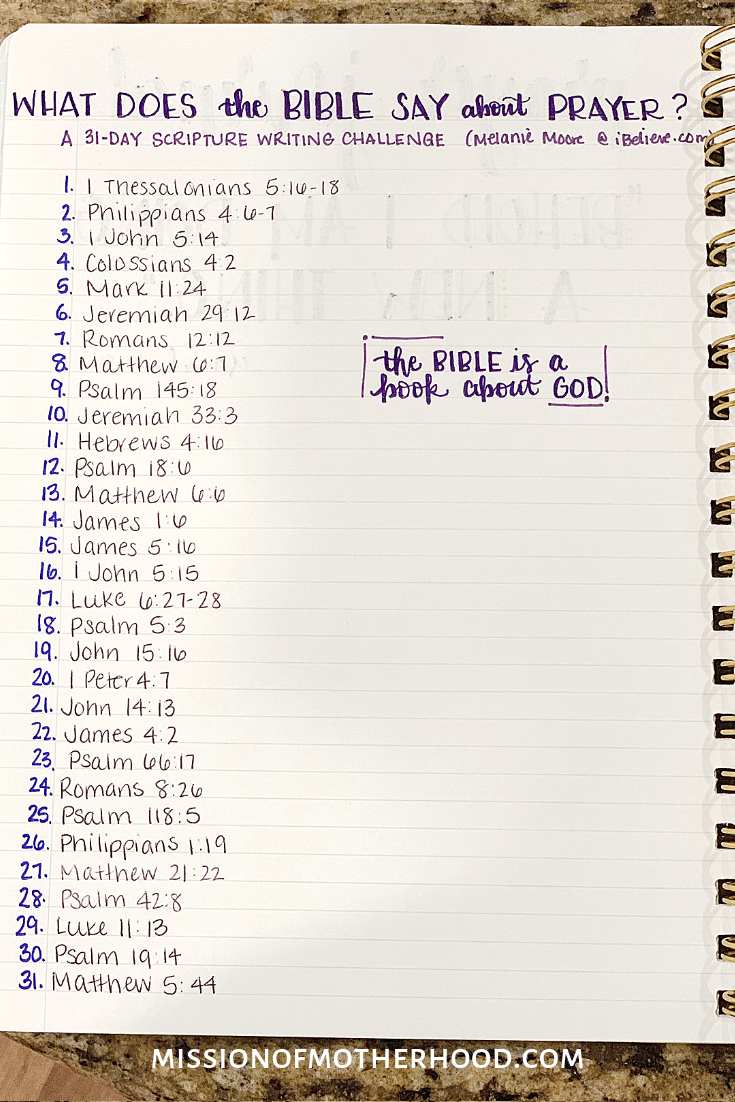 WHAT DOES the BIBLE SAY about PRAYER?
A 31-DAY SCRIPTURE WRITING CHALLENGE (Melanie Moore @ iBelieve.com)
1. 1 Thessalonians 5:16-18
2. Philippians 4:6-7
3. 1 John 5:14
4. Colossians 4:2
5. Mark 11:24
6. Jeremiah 29:12
7. Romans 12:12
8. Matthew 6:7
9. Psalm 145:18
10. Jeremiah 33:3
11. Hebrews 4:16
12. Psalm 18:6
13. Matthew 6:6
14. James 1:6
15. James 5:16
16. 1 John 5:15
17. Luke 6:27-28
18. Psalm 5:3
19. John 15:16
20. 1 Peter 4:7
21. John 14:13
22. James 4:2
23. Psalm 66:17
24. Romans 8:26
25. Psalm 118:5
26. Philippians 1:19
27. Matthew 21:22
28. Psalm 42:8
29. Luke 11:13
30. Psalm 19:14
31. Matthew 5:44
the BIBLE is a
book about GOD!
"BEHOLD I AM DOING
A NEW THING"
MISSIONOFMOTHERHOOD.COM